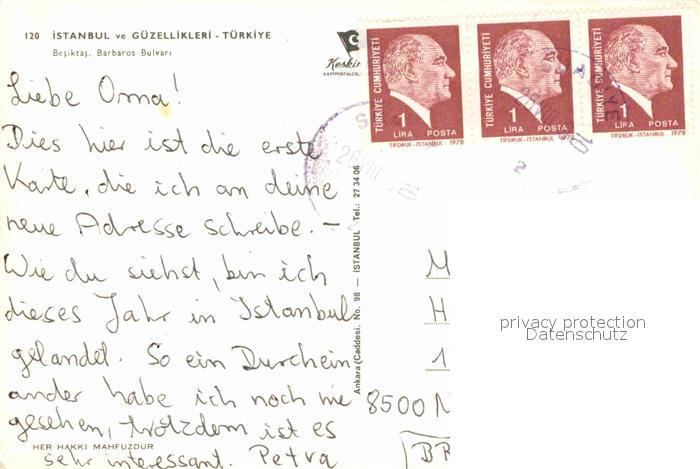 120 İSTANBUL ve GÜZELLİKLERİ - TÜRKİYE
Beşiktaş, Barbaros Bulvarı
Keskin
KARTPOSTALCILIK
Liebe Oma!
Dies hier ist die erste
Karte, die ich an deine
neue Adresse schreibe. –
Wie du siehst, bin ich
dieses Jahr in Istanbul
gelandet. So ein Durchein
ander habe ich noch nie
gesehen, trotzdem ist es
sehr interessant. Petra
HER HAKKI MAHFUZDUR
Ankara (Caddesi, No. 98 — İSTANBUL - Tel.: 27 34 06
TÜRKİYE CUMHURİYETİ
1
LİRA POSTA
TİFDRUK-İSTANBUL 1978
TÜRKİYE CUMHURİYETİ
1
LİRA POSTA
TİFDRUK-İSTANBUL 1978
TÜRKİYE CUMHURİYETİ
1
LİRA POSTA
TİFDRUK-İSTANBUL 1978
M
H
1
8500 N
BR
privacy protection
Datenschutz